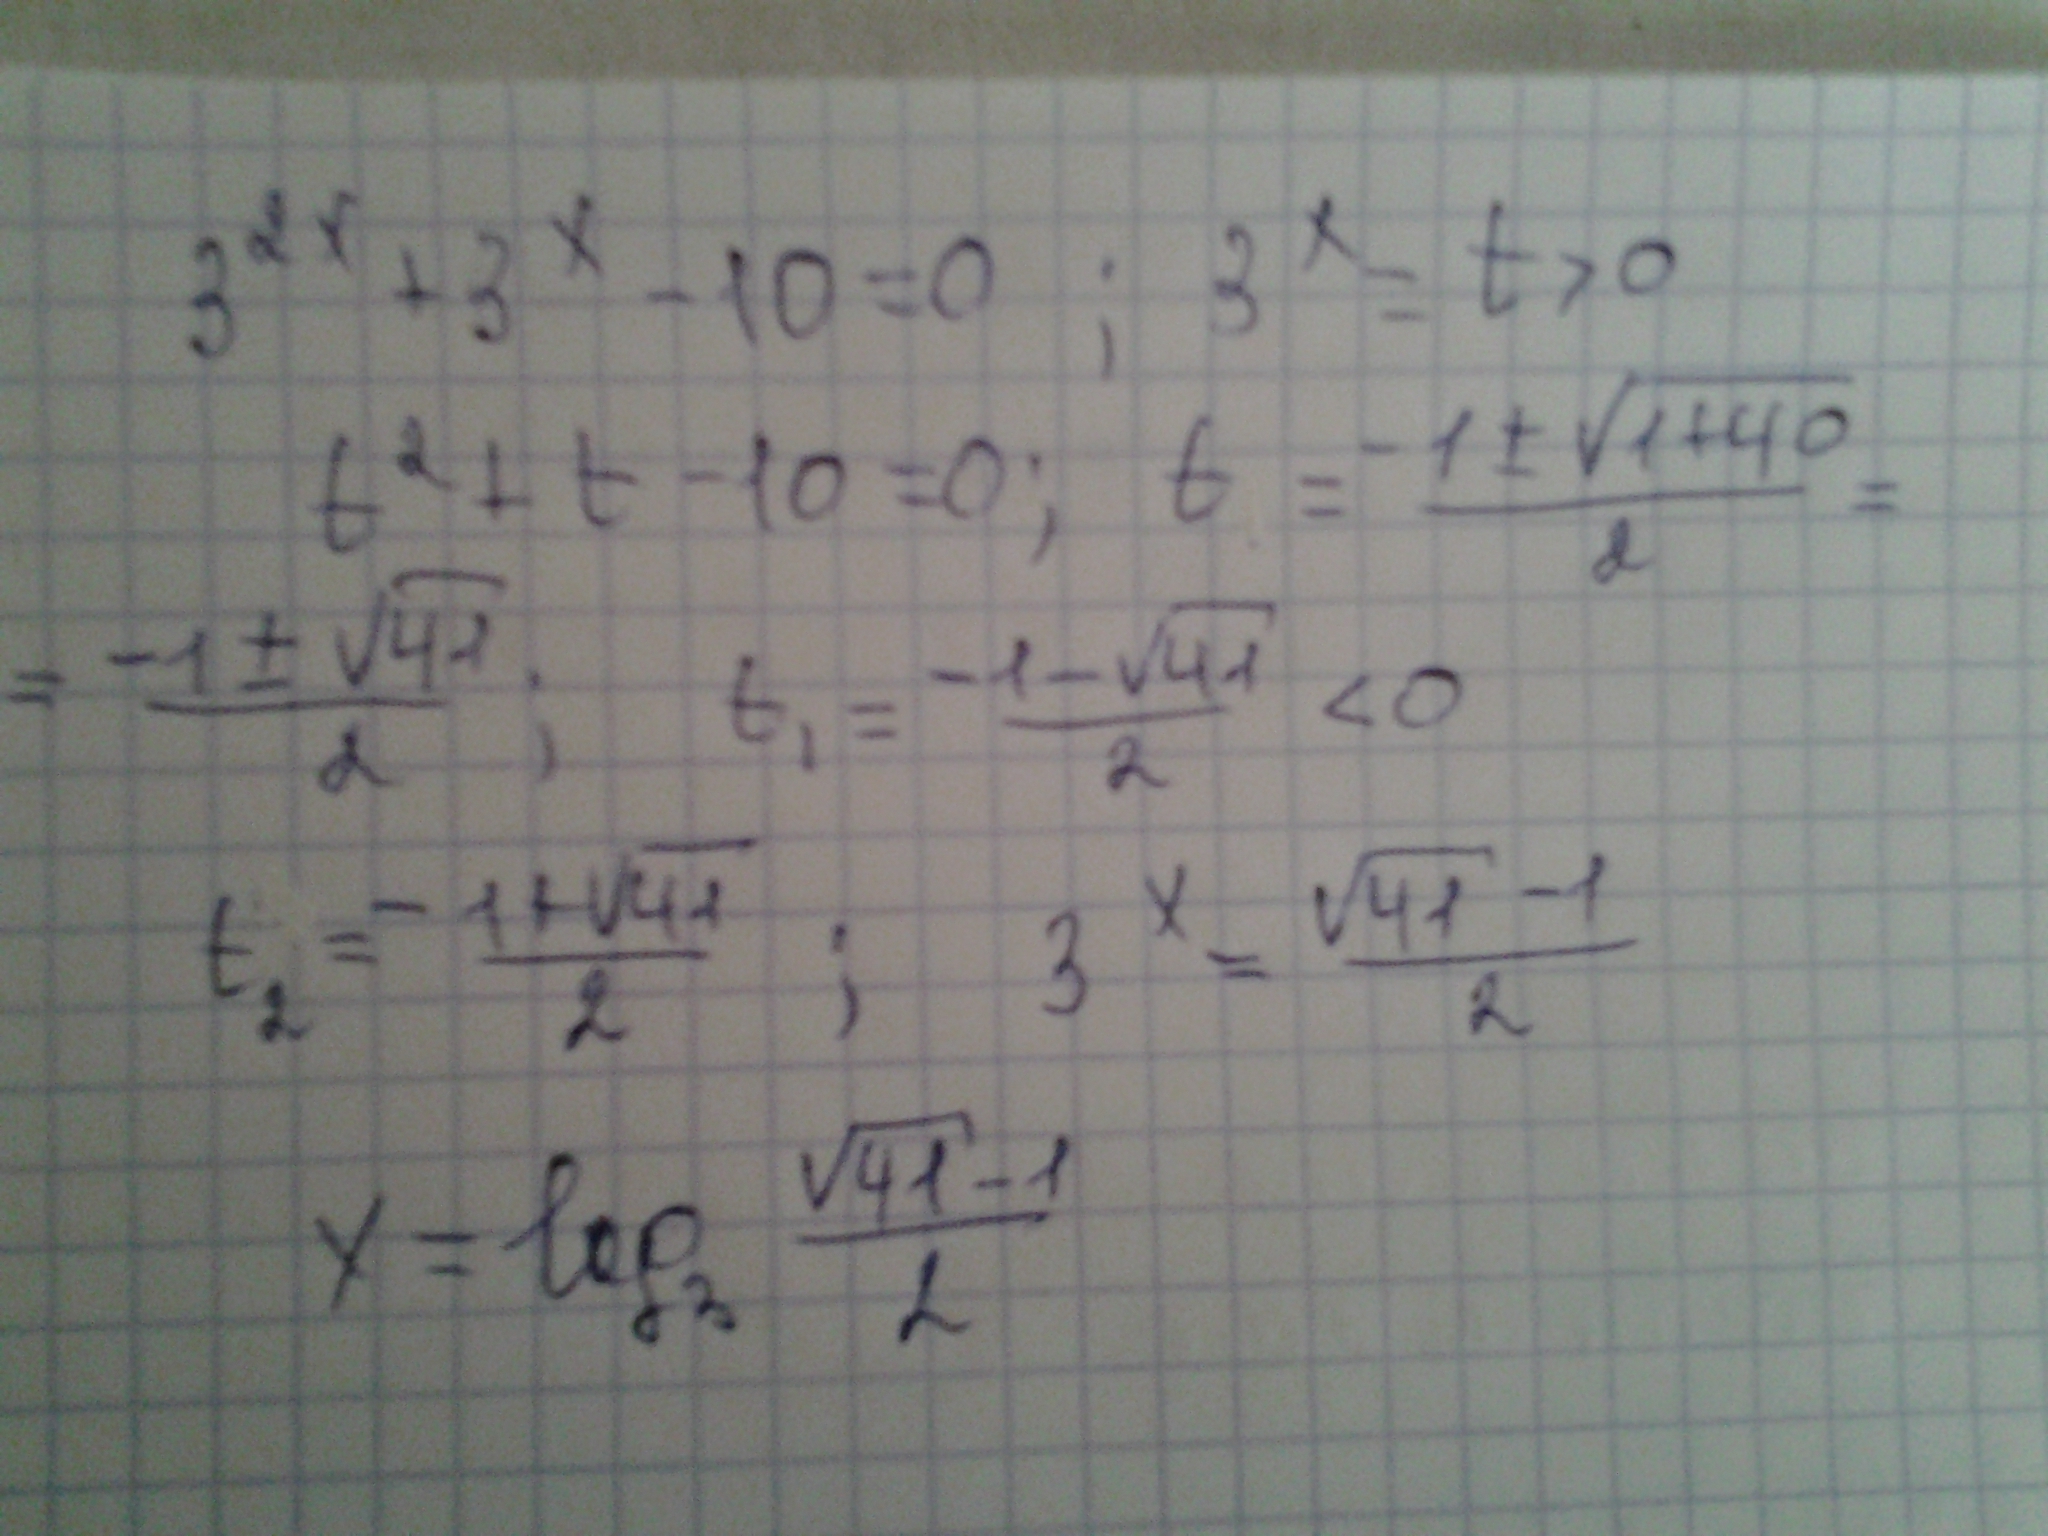 3^{2x} + 3^x - 10 = 0 ; 3^x = t > 0
t^2 + t - 10 = 0 ; t = \frac{-1 ± \sqrt{1+40}}{2} =
= \frac{-1 ± \sqrt{41}}{2} ; t_1 = \frac{-1 - \sqrt{41}}{2} < 0
t_2 = \frac{-1 + \sqrt{41}}{2} ; 3^x = \frac{\sqrt{41} - 1}{2}
x = log_3 \frac{\sqrt{41} - 1}{2}